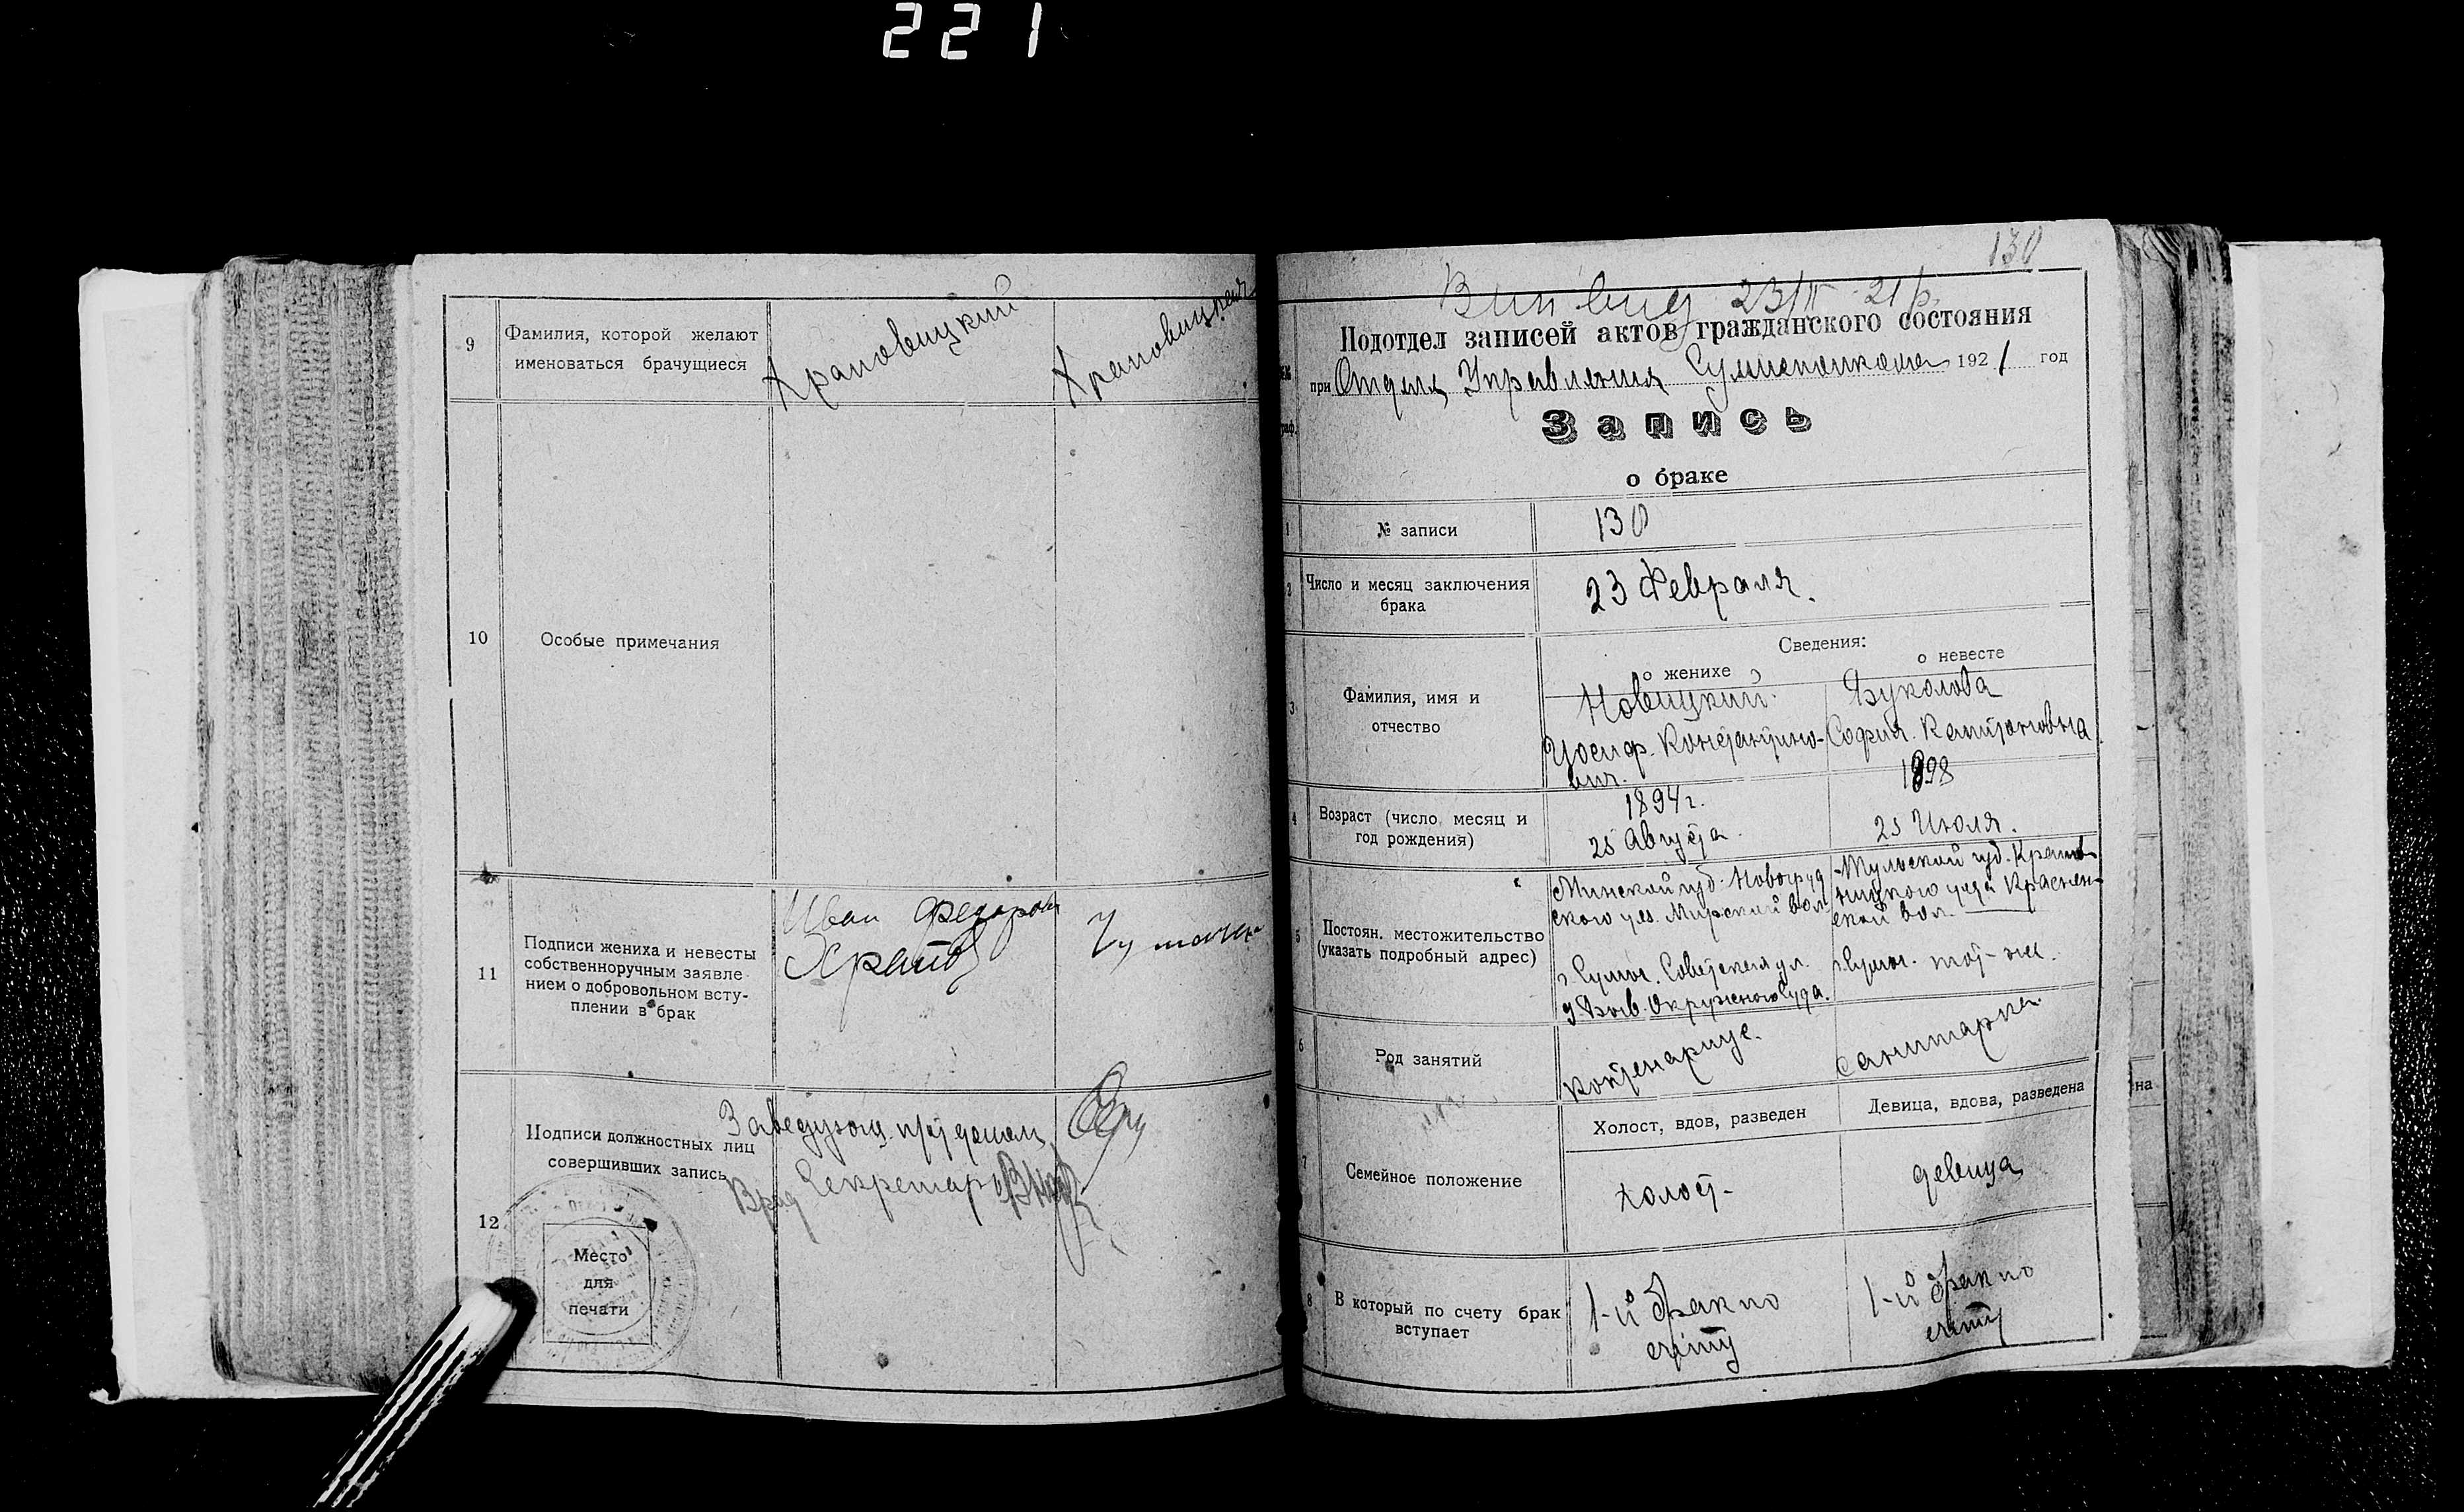 221
9
Фамилия, которой желают
именоваться брачущиеся
Храновицкий
Храновицкая
10
Особые примечания
11
Подписи жениха и невесты
собственноручным заявле
нием о добровольном всту-
плении в брак
Иван Федоров
12
Подписи должностных лиц
совершивших запись
Заведующ.
Секретарь
Место
для
печати
130
23/II 21 р.
Подотдел записей актов гражданского состояния
при Отделе Управления 1921 год
Запись
о браке
1
№ записи
130
2
Число и месяц заключения
брака
23 Февраля.
Сведения:
о женихе
о невесте
3
Фамилия, имя и
отчество
Новицкий.
Иосиф. Константино-
вич.
Букалова
София. Капитоновна
4
Возраст (число месяц и
год рождения)
1894 г.
25 Августа.
1898
25 Июля.
5
Постоян. местожительство
(указать подробный адрес)
Минской губ. Новогруд
ского уез. Мирской вол
г. Сумы. Советская ул.
д. Быв. Окружного Суда.
Тульской губ.
уезда
ской вол.
г. Сумы. той-же.
6
Род занятий
санитарка
7
Семейное положение
Холост, вдов, разведен
Девица, вдова, разведена
холост-
девица
8
В который по счету брак
вступает
1-й брак по
счету
1-й брак по
счету
на